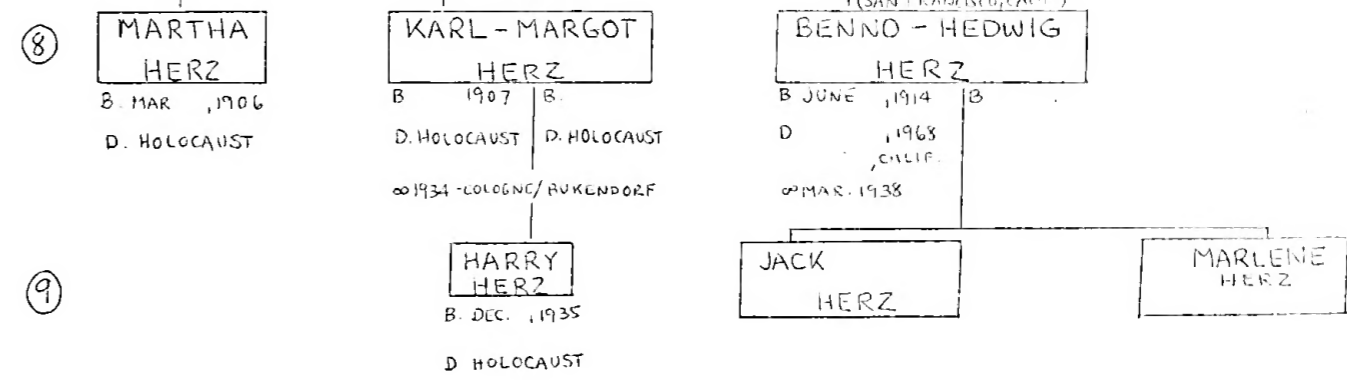 (SAN FRANCISCO, CALIF.)
⑧
MARTHA
HERZ
B. MAR ,1906
D. HOLOCAUST
KARL - MARGOT
HERZ
B 1907 B.
D. HOLOCAUST D. HOLOCAUST
∞ 1934 - COLOGNE/
BENNO - HEDWIG
HERZ
B JUNE ,1914 B
D ,1968
,CALIF.
∞ MAR. 1938
⑨
HARRY
HERZ
B. DEC. ,1935
D HOLOCAUST
JACK
HERZ
MARLENE
HERZ